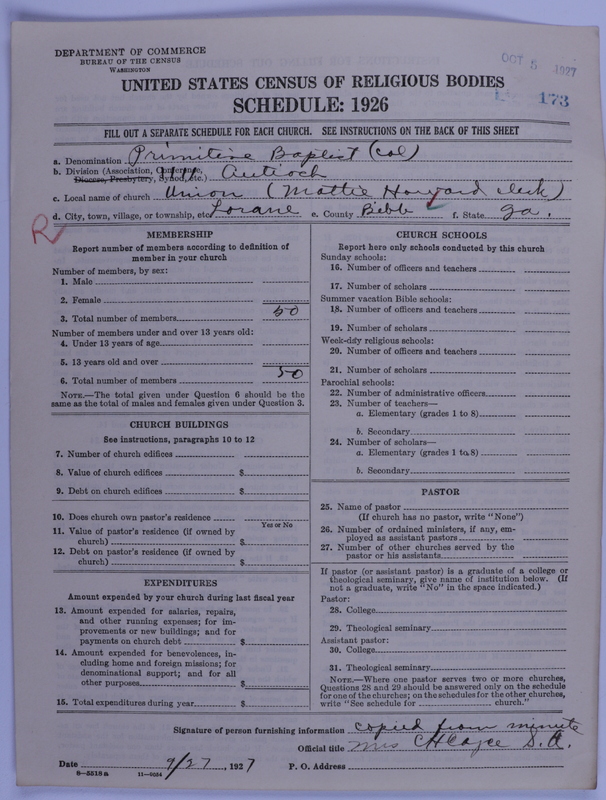 DEPARTMENT OF COMMERCE
BUREAU OF THE CENSUS
WASHINGTON
OCT 5 1927
UNITED STATES CENSUS OF RELIGIOUS BODIES
SCHEDULE: 1926
173
FILL OUT A SEPARATE SCHEDULE FOR EACH CHURCH. SEE INSTRUCTIONS ON THE BACK OF THIS SHEET
a. Denomination Primitive Baptist (Col)
b. Division (Association, Conference, Diocese, Presbytery, Synod, etc.) Antioch
c. Local name of church Union (Mattie Howard Clerk)
d. City, town, village, or township, etc. Lorane e. County Bibb f. State Ga.
R
MEMBERSHIP
Report number of members according to definition of
member in your church
Number of members, by sex:
1. Male
2. Female
3. Total number of members 50
Number of members under and over 13 years old:
4. Under 13 years of age
5. 13 years old and over
6. Total number of members 50
NOTE.—The total given under Question 6 should be
same as the total of males and females given under Question 3.
CHURCH BUILDINGS
See instructions, paragraphs 10 to 12
7. Number of church edifices
8. Value of church edifices $
9. Debt on church edifices $
10. Does church own pastor's residence
Yes or No
11. Value of pastor's residence (if owned by
church) $
12. Debt on pastor's residence (if owned by
church) $
EXPENDITURES
Amount expended by your church during last fiscal year
13. Amount expended for salaries, repairs,
and other running expenses; for im-
provements or new buildings; and for
payments on church debt $
14. Amount expended for benevolences, in-
cluding home and foreign missions; for
denominational support; and for all
other purposes $
15. Total expenditures during year $
CHURCH SCHOOLS
Report here only schools conducted by this church
Sunday schools:
16. Number of officers and teachers
17. Number of scholars
Summer vacation Bible schools:
18. Number of officers and teachers
19. Number of scholars
Week-day religious schools:
20. Number of officers and teachers
21. Number of scholars
Parochial schools:
22. Number of administrative officers
23. Number of teachers—
a. Elementary (grades 1 to 8)
b. Secondary
24. Number of scholars—
a. Elementary (grades 1 to 8)
b. Secondary
PASTOR
25. Name of pastor
(If church has no pastor, write "None")
26. Number of ordained ministers, if any, em-
ployed as assistant pastors
27. Number of other churches served by the
pastor or his assistants
If pastor (or assistant pastor) is a graduate of a college or
theological seminary, give name of institution below. (If
not a graduate, write "No" in the space indicated.)
Pastor:
28. College
29. Theological seminary
Assistant pastor:
30. College
31. Theological seminary
NOTE.—Where one pastor serves two or more churches,
Questions 28 and 29 should be answered only on the schedule
for one of the churches; on the schedules for the other churches,
write "See schedule for church."
Signature of person furnishing information copied from minute
Official title Mrs S. A.
Date 9/27, 1927 P. O. Address
8—5518a 11—9054